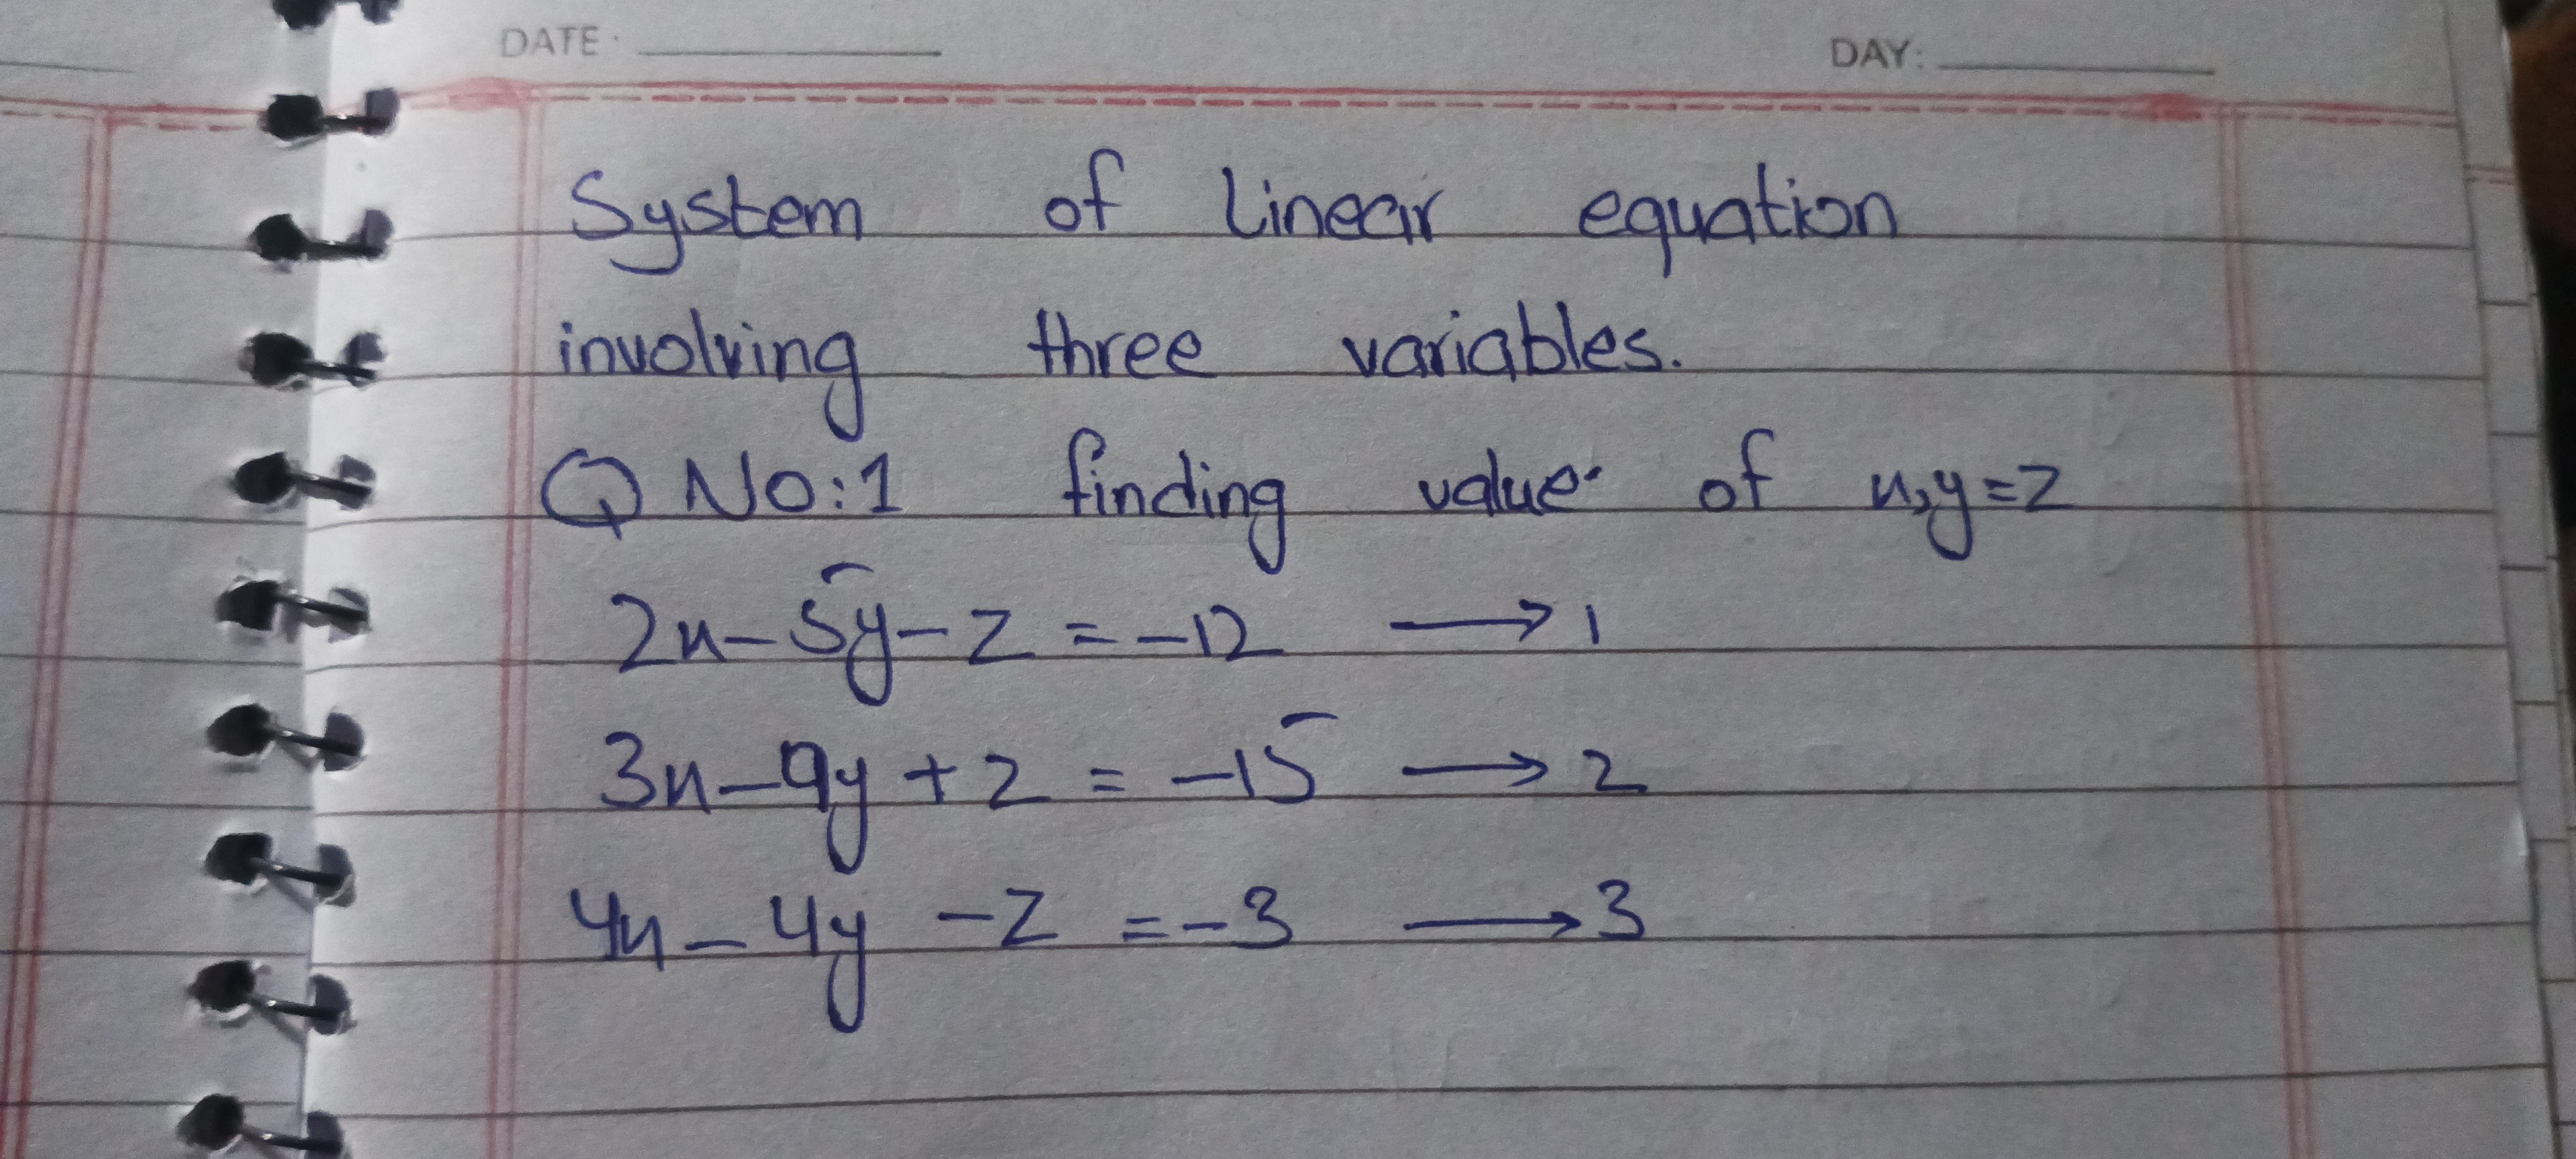 DATE: DAY:
System of linear equation
involving three variables.
Q No:1 finding value of x,y=z
2x-5y-z = -12 → 1
3x-9y+z = -15 → 2
4x-4y-z =-3 → 3